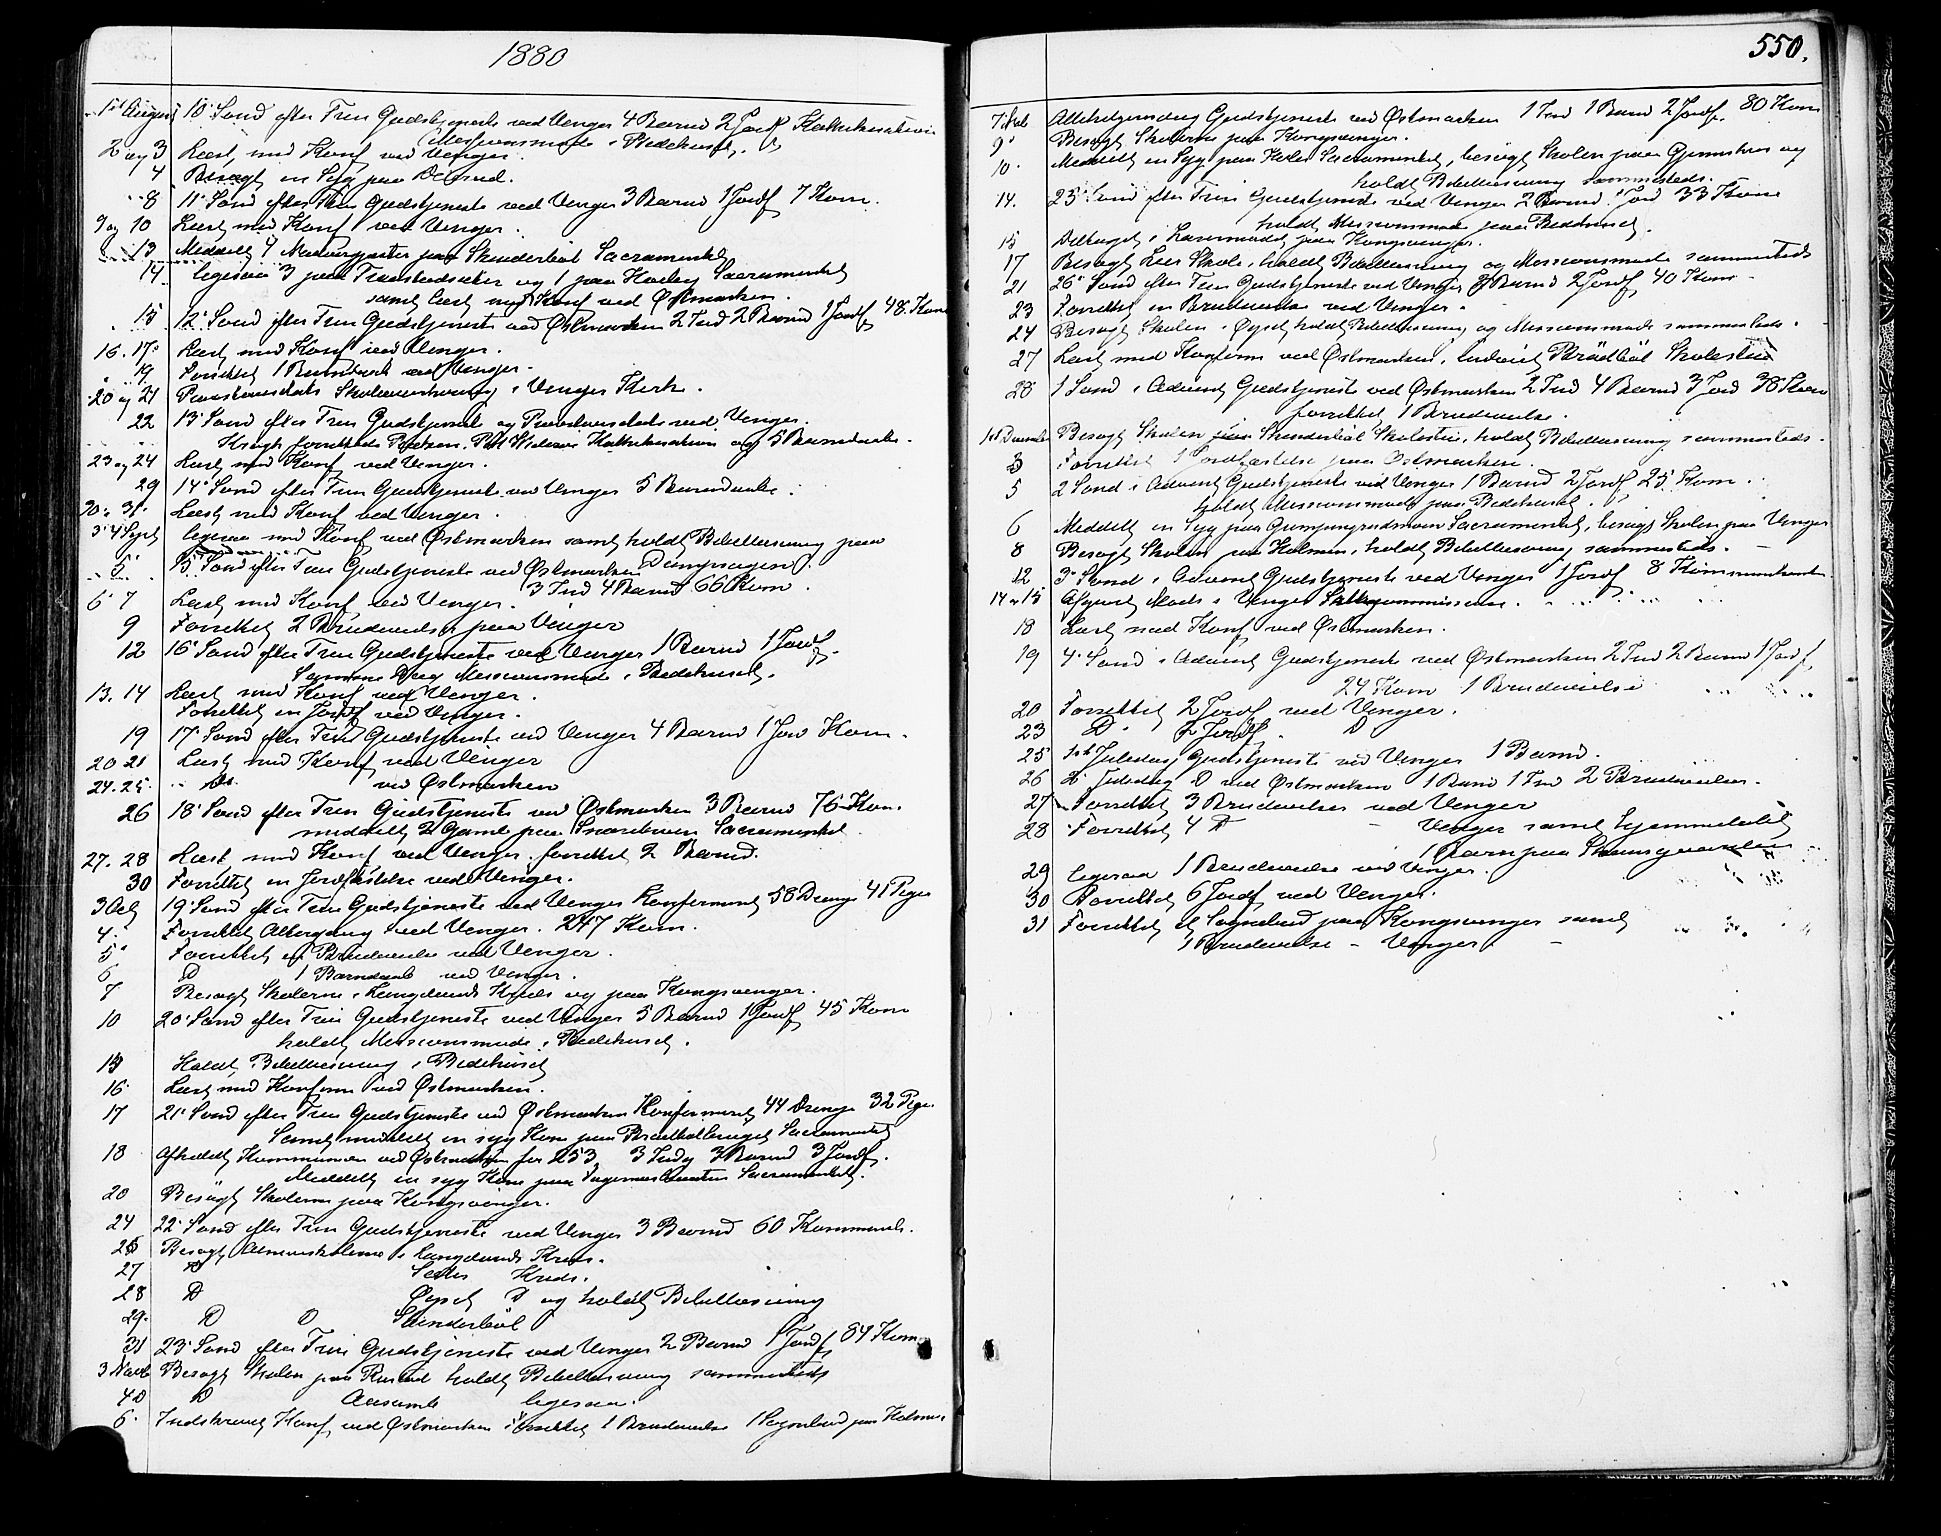 1880
1st August 10' Sønd efter Trin Gudstjeneste ved Vinger 4 Barnd 2 Jordf Katekisation
Missionsmøde i Bedehuset.
2 og 3 Læst med Konf ved Vinger.
4 Besøgt en Syg paa
8 11' Sønd efter Trin Gudstjeneste ved Vinger 3 Barnd 1 Jordf 7 Kom.
9 og 10 Læst med Konf ved Vinger.
13 Meddelt 4 paa Skinderbøl Sacramentet
14 ligesaa 3 paa og 1 paa Sacramentet
samt læst med Konf ved Østmarken.
15 12' Sønd efter Trin Gudstjeneste ved Østmarken 2 Ind 2 Barnd 1 Jordf 48 Kom
16. 17. Læst med Konf ved Vinger.
19 Forrettet 1 Barnd ved Vinger.
20 og 21 i Vinger Kirke.
22 13' Sønd efter Trin Gudstjeneste og ved Vinger
Katekisation og 5 Barnedaabe.
23 og 24 Læst med Konf ved Vinger.
29 14' Sønd efter Trin Gudstjeneste ved Vinger 5 Barnedaabe.
30. 31. Læst med Konf ved Vinger.
3' 4 Sept ligesaa med Konf ved Østmarken samt holdt Bibellæsning paa
5' 15' Sønd efter Trin Gudstjeneste ved Østmarken
3 Ind 4 Barnd 66 Kom.
6 7 Læst med Konf ved Vinger.
9 Forrettet 2 Brudevielser paa Vinger
12 16' Sønd efter Trin Gudstjeneste ved Vinger 1 Barnd 1 Jordf.
Samme Dag Missionsmøde i Bedehuset.
13. 14 Læst med Konf ved Vinger.
Forrettet en Jordf ved Vinger.
19 17' Sønd efter Trin Gudstjeneste ved Vinger 4 Barnd 1 Jor Kom.
20 21 Læst med Konf ved Vinger
24. 25. Do. ved Østmarken
26 18' Sønd efter Trin Gudstjeneste ved Østmarken 3 Barnd 76 Kom.
meddelt 2 Gamle paa Sacramentet.
27. 28 Læst med Konf ved Vinger. forrettet 2 Barnd.
30 Forrettet en Jordfæstelse ved Vinger.
3 Oct 19' Sønd efter Trin Gudstjeneste ved Vinger Konfirmeret 58 Drenge 41 Piger
4. Forrettet Altergang ved Vinger. 247 Kom.
5' Forrettet en Brudevielse ved Vinger.
6 D 1 Barnedaab ved Vinger.
7 Besøgt Skolerne i Langelands Kreds og paa Kongsvinger.
10 20' Sønd efter Trin Gudstjeneste ved Vinger 5 Barnd 1 Jordf 45 Kom
holdt Missionsmøde i Bedehuset.
15 Holdt Bibellæsning i Bedehuset
16 Læst med Konfirm ved Østmarken.
17 21' Sønd efter Trin Gudstjeneste ved Østmarken Konfirmeret 44 Drenge 32 Pige.
Samt meddelt en syg Kone paa Sacramentet
18 Afholdt Kommunion ved Østmarken for 253 3 Indg 3 Barnd 3 Jordf.
Meddelt en syg Kone paa Sacramentet.
20 Besøgt Skolerne paa Kongsvinger.
24 22' Sønd efter Trin Gudstjeneste ved Vinger 3 Barnd 60 Kommunik.
26 Besøgt Almueskolerne i Langelands Kreds.
27 D Kreds.
28 D Øyset D og holdt Bibellæsning
29. D D Skinderbøl
31 23' Sønd efter Trin Gudstjeneste ved Vinger 2 Barnd 1 Jordf 84 Kom.
3 Novb Besøgt Skolen paa holdt Bibellæsning sammesteds
4 D D Aasum ligesaa.
6. Indskrevet Konf ved Østmarken forrettet 1 Brudevielse 1 Sognebud paa Holmen
550.
7 Novb Allehelgensdag Gudstjeneste ved Østmarken 1 Ind 1 Barnd 2 Jordf. 80 Kom
9' Besøgt Skolerne paa Kongsvinger.
10. Meddelt en Syg paa Sacramentet, besøgt Skolen paa og
holdt Bibellæsning sammesteds.
14. 25' Sønd efter Trin Gudstjeneste ved Vinger 2 Barnd 1 Jord 33 Kom
holdt Missionsmøde paa Bedehuset.
15 Deltaget i Lærermødet paa Kongsvinger.
17 Besøgt Lier Skole, holdt Bibellæsning og Missionsmøde sammesteds
21 26' Sønd efter Trin Gudstjeneste ved Vinger 3 Barnd 2 Jordf 40 Kom
23 Forrettet en Brudevielse ved Vinger.
24 Besøgt Skolen i Øyset holdt Bibellæsning og Missionsmøde sammesteds.
27 Læst med Konfirm ved Østmarken, Brødbøl Skolestue
28 1 Sønd i Advent Gudstjeneste ved Østmarken 2 Ind 4 Barnd 3 Jord 38 Kom
forrettet 1 Brudevielse.
1st December Besøgt Skolen paa Skinderbøl Skolestue, holdt Bibellæsning sammesteds.
3 Forrettet 1 Jordfæstelse paa Østmarken.
5 2 Sønd i Advent Gudstjeneste ved Vinger 1 Barnd 2 Jordf 25 Kom.
holdt Missionsmøde paa Bedehuset.
6 Meddelt en Syg paa Sacramentet, besøgt Skolen paa Vinger
8 Besøgt Skolen paa Holmen, holdt Bibellæsning sammesteds.
12 3' Sønd i Advent Gudstjeneste ved Vinger 1 Jordf 8 Kommunikanter
14 og 15 Møde i Vinger
18 Læst med Konf ved Østmarken.
19 4. Sønd i Advent Gudstjeneste ved Østmarken 2 Ind 2 Barnd 1 Jordf.
24 Kom 1 Brudevielse
20 Forrettet 2 Jordf ved Vinger.
23 D. 2 Jordf. D
25 1st Juledag Gudstjeneste ved Vinger 1 Barnd.
26 2. Juledag D ved Østmarken 1 Barnd 1 Ind 2 Brudevielser.
27 Forrettet 3 Brudevielser ved Vinger
28 Forrettet 4 D – Vinger samt hjemmedøbt
1 Barn paa
29 ligesaa 1 Brudevielse ved Vinger.
30 Forrettet 6 Jordf ved Vinger.
31 Forrettet et Sognebud paa Kongsvinger samt
1 Brudevielse – Vinger –